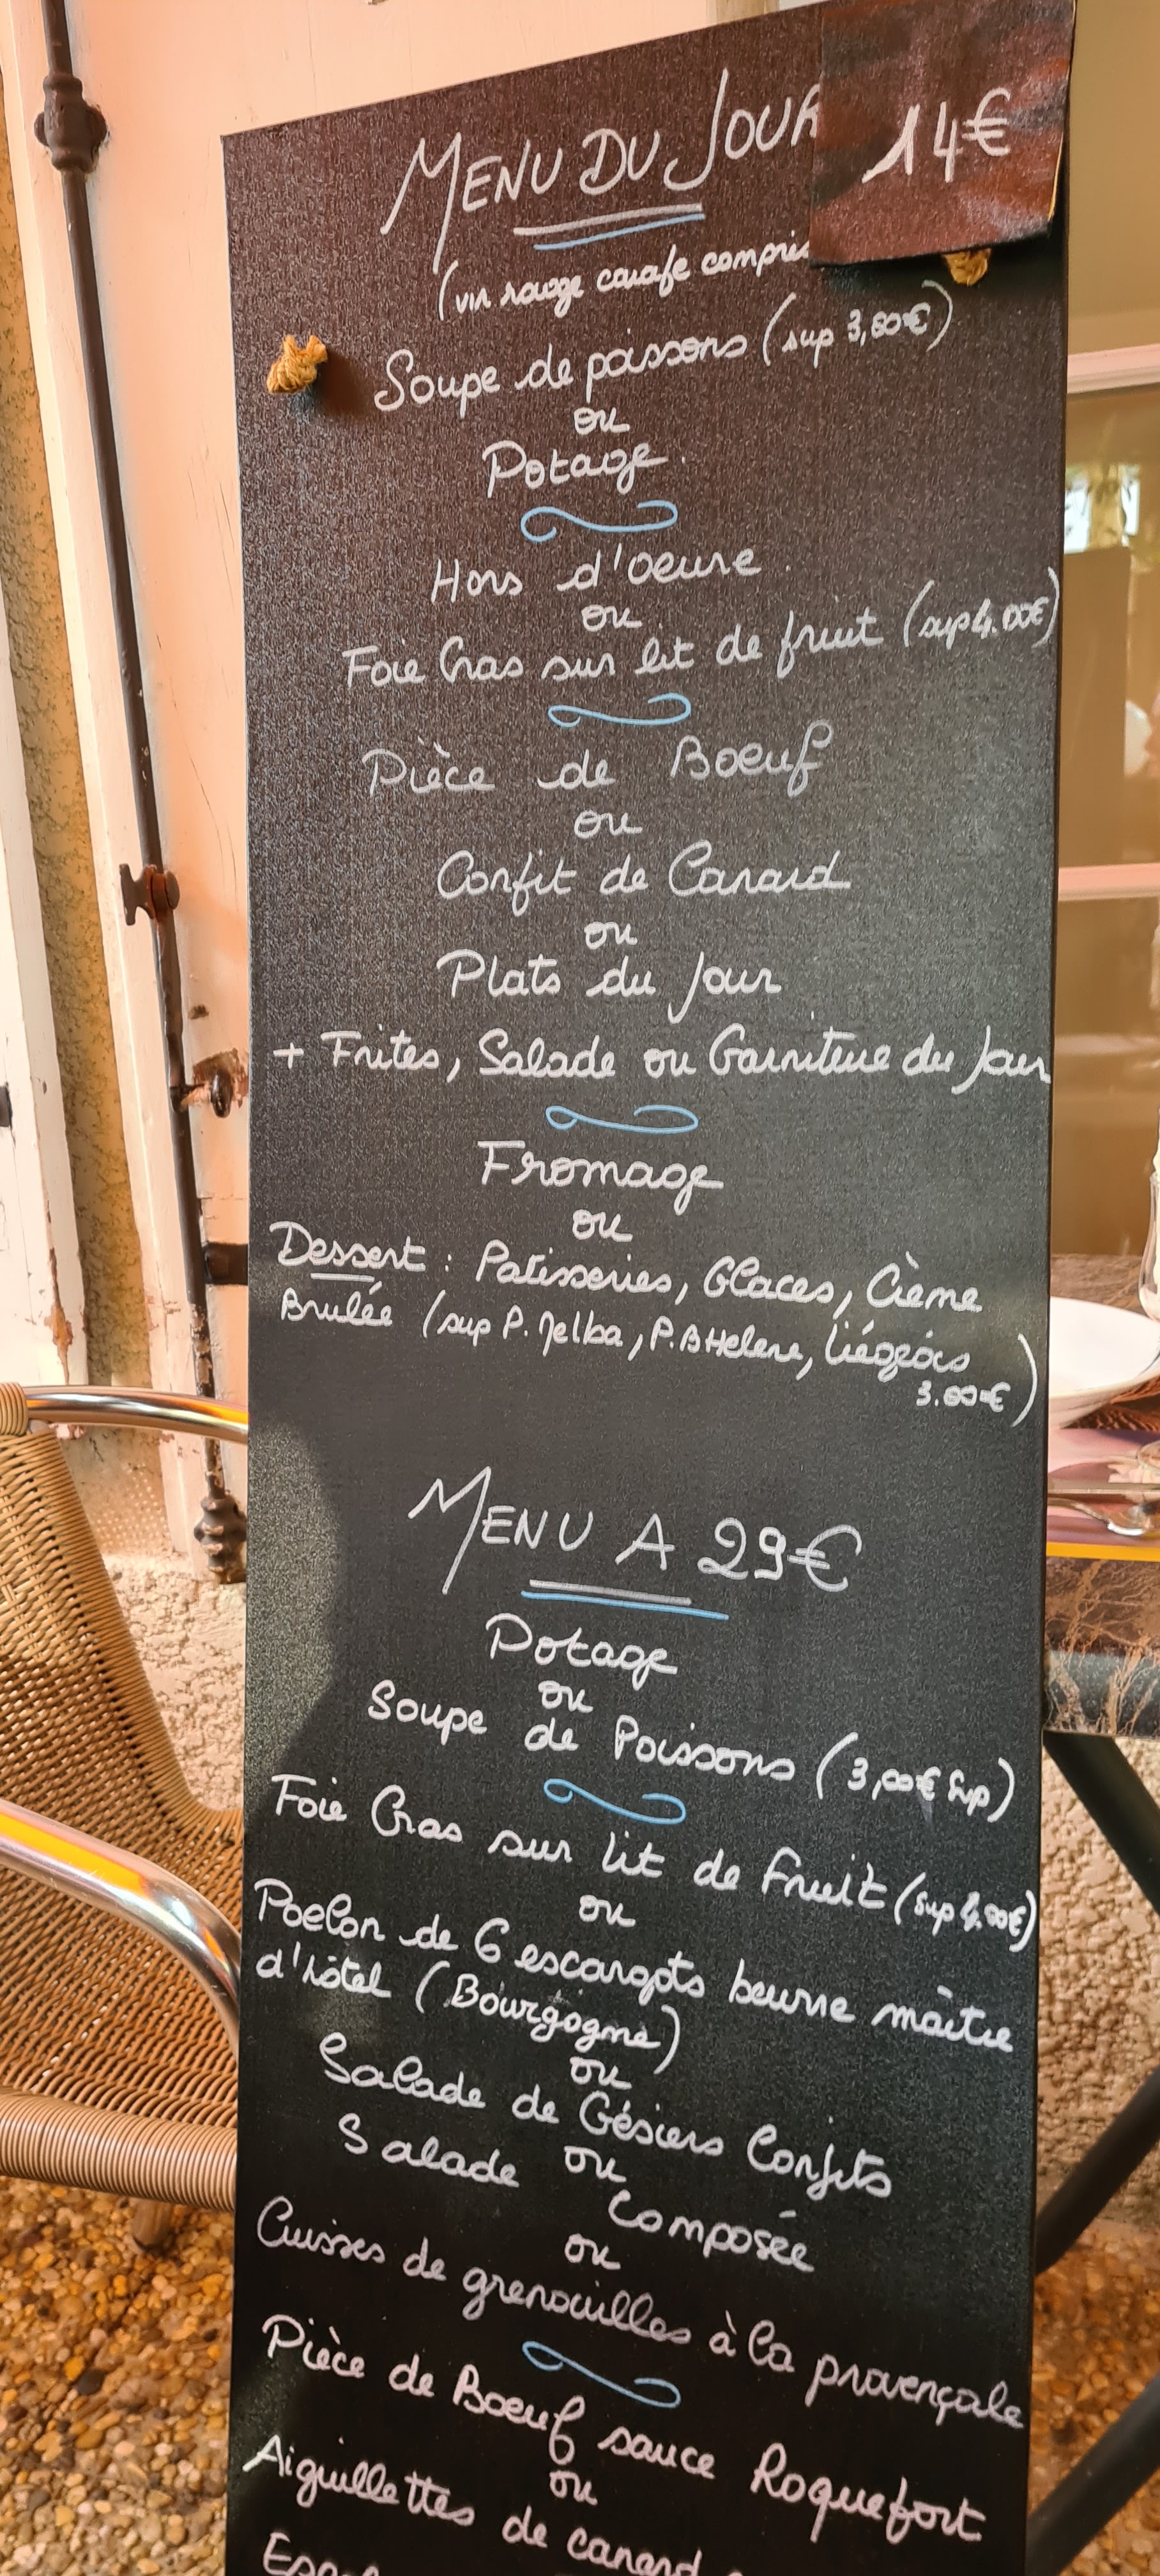 MENU DU JOUR 14€
(vin rouge carafe compris
Soupe de poissons (sup 3,00€)
ou
Potage.
Hors d'oeuvre.
ou
Foie Gras sur lit de fruit (sup 4.00€)
Pièce de Boeuf
ou
Confit de Canard
ou
Plats du Jour
+ Frites, Salade ou Garniture du Jour
Fromage
ou
Dessert : Patisseries, Glaces, Crème
Brulée (sup P. Melba, P.B Helene, Liégeois
3.00€)
MENU A 29€
Potage
ou
Soupe de Poissons (3,00€ Sup)
Foie Gras sur lit de Fruit (sup 4.00€)
ou
Poelon de 6 escargots beurre maître
d'hôtel (Bourgogne)
ou
Salade de Gésiers Confits
ou
Salade Composée
ou
Cuisses de grenouilles à la provençale
Pièce de Boeuf sauce Roquefort
ou
Aiguillettes de canard